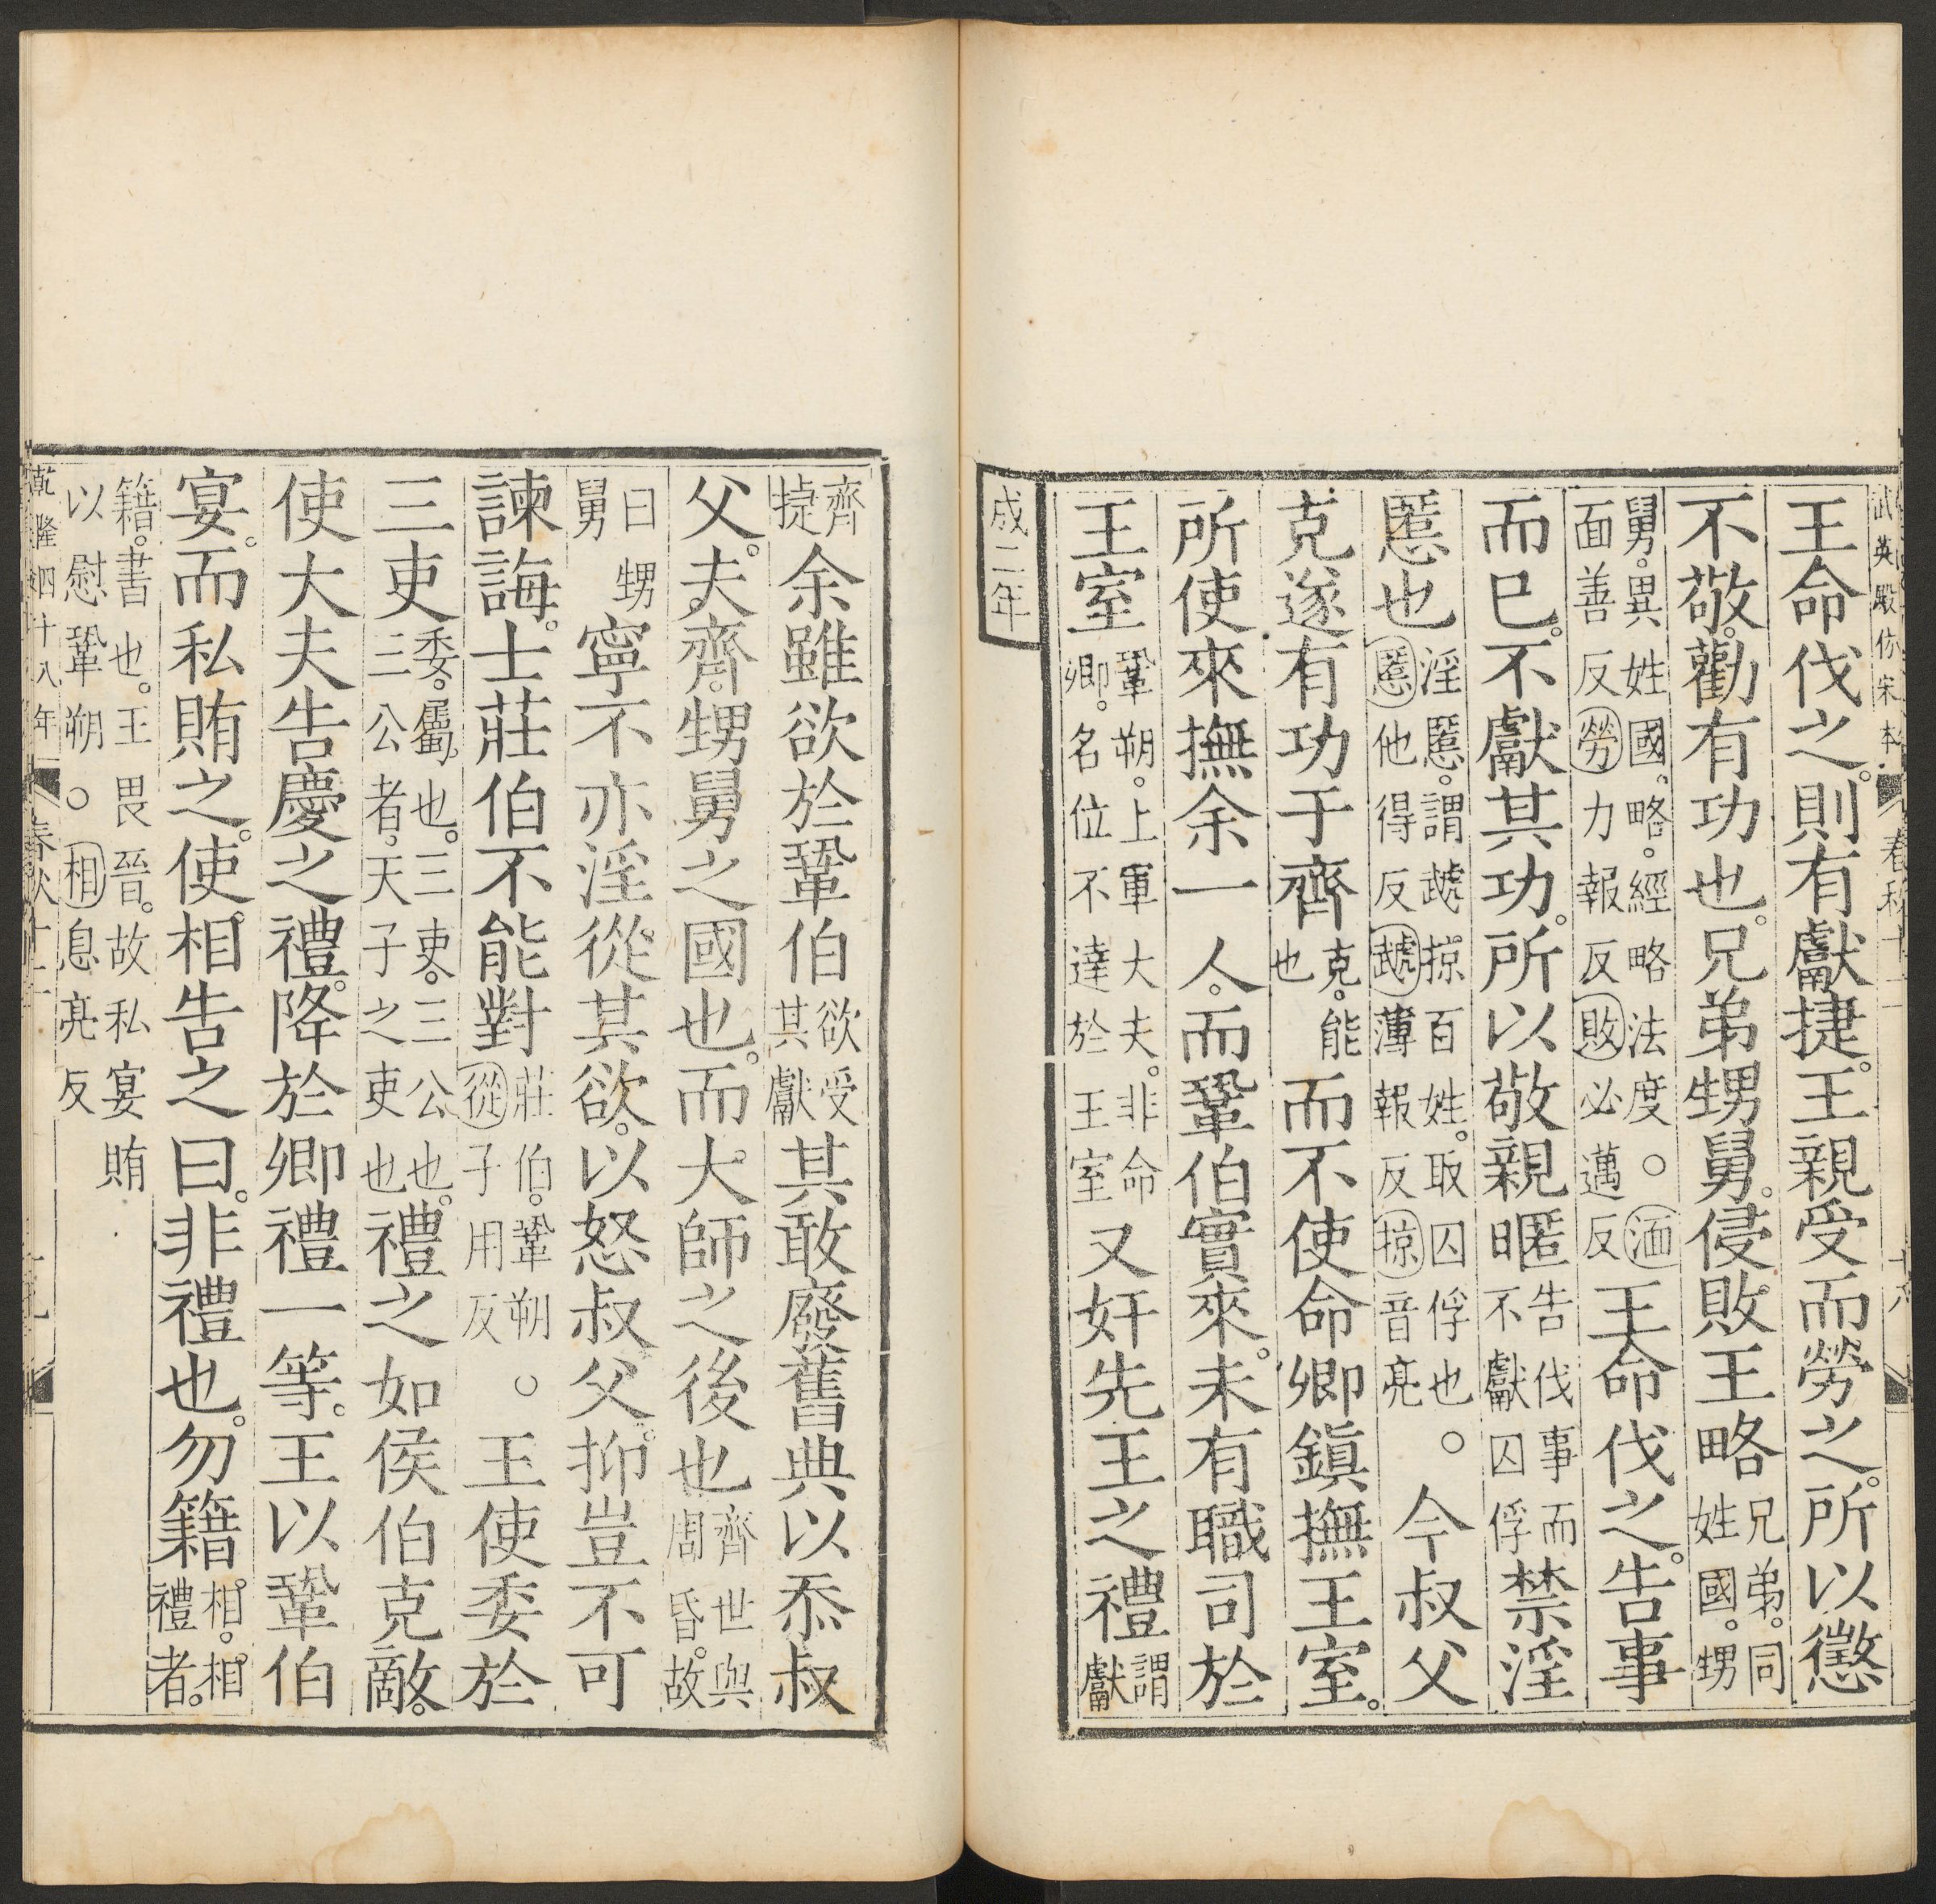 武英殿仿宋本 春秋十二 十八
王命伐之。則有獻捷。王親受而勞之。所以懲
不敬。勸有功也。兄弟甥舅。侵敗王略兄弟。同姓國。甥
舅。異姓國、略。經略法度。○湎面善反勞力報反敗必邁反王命伐之。告事
而已。不獻其功。所以敬親暱告伐事而不獻囚俘禁淫
慝也淫慝。謂虣掠百姓。取囚俘也。○慝他得反虣薄報反掠音亮今叔父
克遂有功于齊克。能也而不使命卿鎮撫王室。
所使來撫余一人。而鞏伯實來。未有職司於
王室鞏朔。上軍大夫。非命卿。名位不達於王室又奸先王之禮謂獻
成二年
齊捷余雖欲於鞏伯欲受其獻其敢廢舊典以忝叔
父。夫齊。甥舅之國也。而大師之後也齊世與周昏。故
曰甥舅寧不亦淫從其欲。以怒叔父。抑豈不可
諫誨。士莊伯不能對莊伯。鞏朔。○從子用反王使委於
三吏委。屬也。三吏。三公也。三公者。天子之吏也禮之如侯伯克敵。
使大夫告慶之禮。降於卿禮一等。王以鞏伯
宴。而私賄之。使相告之曰。非禮也。勿籍相。相禮者。
籍。書也。王畏晉。故私宴賄以慰鞏朔。○相息亮反
乾隆四十八年 春秋十二 十九